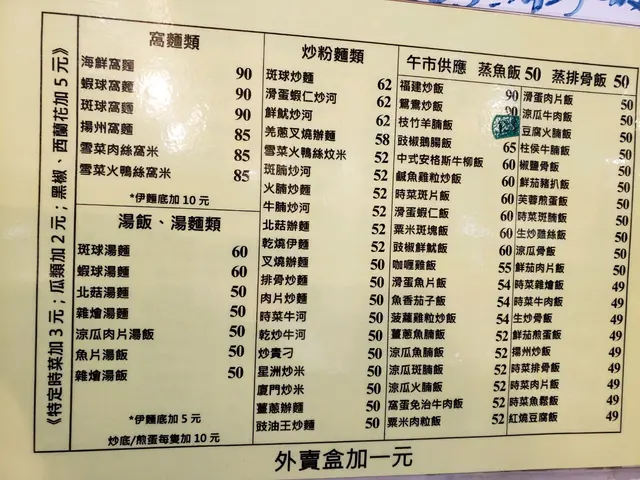 《特定時菜加 3 元；瓜類加 2 元；黑椒、西蘭花加 5 元》
窩麵類
海鮮窩麵 90
蝦球窩麵 90
斑球窩麵 90
揚州窩麵 85
雪菜肉絲窩米 85
雪菜火鴨絲窩米 85
*伊麵底加 10 元
湯飯、湯麵類
斑球湯麵 60
蝦球湯麵 60
北菇湯麵 50
雜燴湯麵 50
涼瓜肉片湯飯 50
魚片湯飯 50
雜燴湯飯 50
*伊麵底加 5 元
炒底/煎蛋每隻加 10 元
炒粉麵類
斑球炒麵 62
滑蛋蝦仁炒河 62
鮮魷炒河 62
羌蔥叉燒辦麵 58
雪菜火鴨絲炆米 52
斑腩炒河 52
火腩炒麵 52
牛腩炒河 52
北菇辦麵 52
乾燒伊麵 52
叉燒炒麵 50
排骨炒麵 50
肉片炒麵 50
時菜牛河 50
乾炒牛河 50
炒貴刁 50
星洲炒米 50
廈門炒米 50
薑蔥辦麵 50
豉油王炒麵 50
午市供應 蒸魚飯 50 蒸排骨飯 50
福建炒飯 90
鴛鴦炒飯 90
枝竹羊腩飯
豉椒鵝腸飯 65
中式安格斯牛柳飯 60
鹹魚雞粒炒飯 60
時菜斑片飯 60
滑蛋蝦仁飯 60
粟米斑塊飯 60
豉椒鮮魷飯 60
咖喱雞飯 55
滑蛋魚片飯 54
魚香茄子飯 54
菠蘿雞粒炒飯 54
薑蔥魚腩飯 52
涼瓜魚腩飯 52
涼瓜斑腩飯 52
涼瓜火腩飯 52
窩蛋免治牛肉飯 52
粟米肉粒飯 52
滑蛋肉片飯 50
涼瓜牛肉飯 50
豆腐火腩飯 50
柱侯牛腩飯 50
椒鹽骨飯 50
鮮茄豬扒飯 50
芙蓉煎蛋飯 50
時菜斑腩飯 50
生炒雞絲飯 50
涼瓜骨飯 50
鮮茄肉片飯 50
時菜雜燴飯 49
時菜牛肉飯 49
生炒骨飯 49
鮮茄煎蛋飯 49
揚州炒飯 49
時菜排骨飯 49
時菜肉片飯 49
時菜魚鬆飯 49
紅燒豆腐飯 49
外賣盒加一元